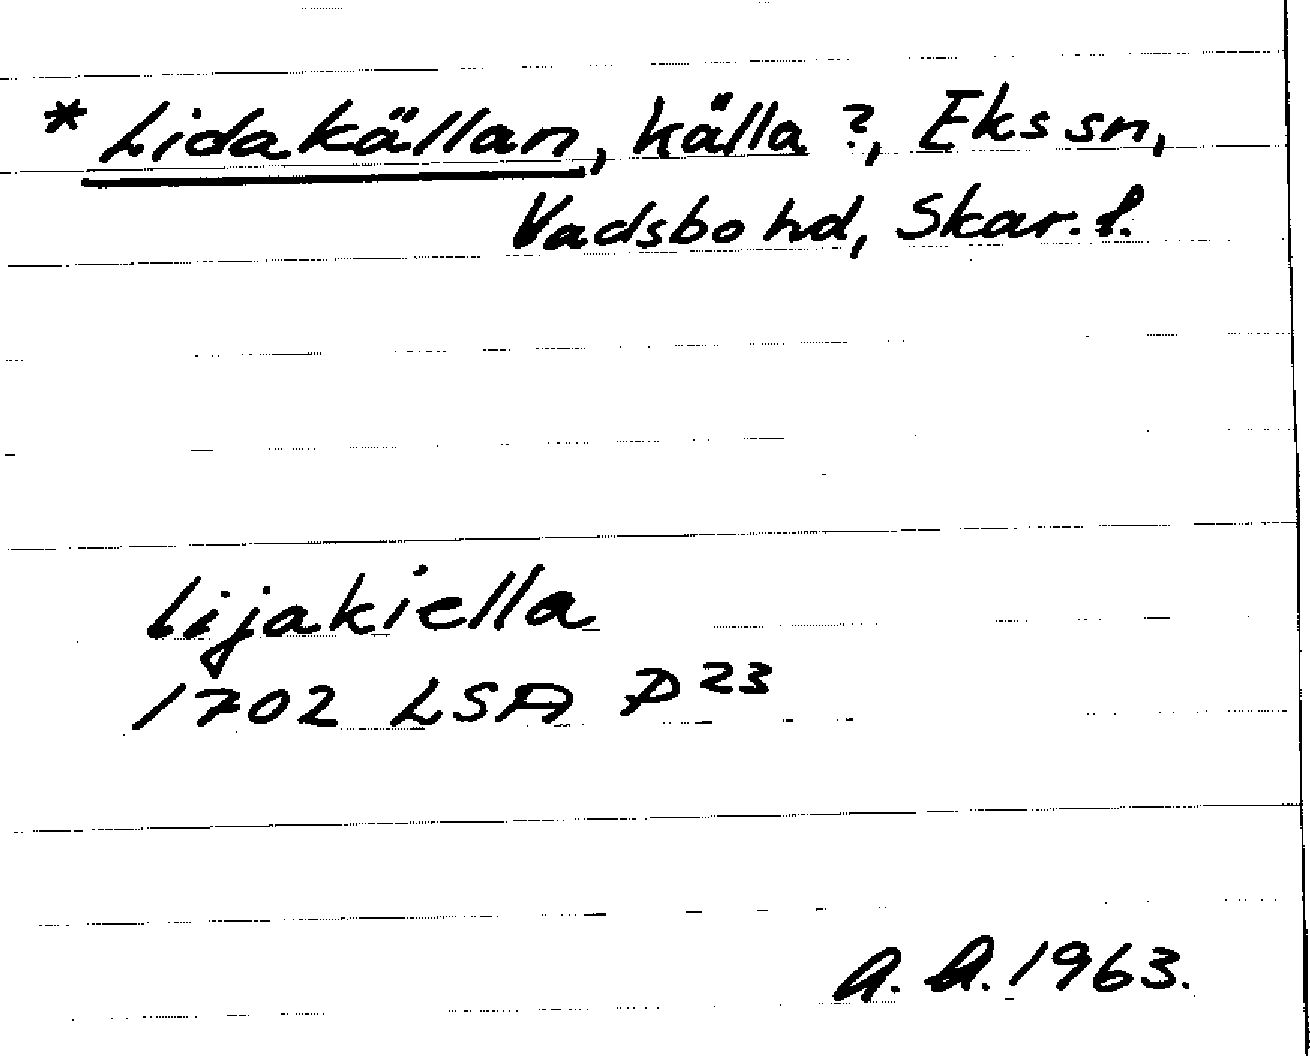 * Lidakällan, källa?, Eks sn,
Vadsbo hd, Skar. l.
Lijakiella
1702 LSA P 23
A. A. 1963.